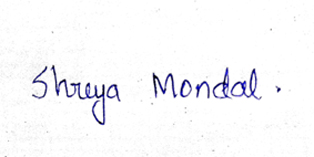 Shreya Mondal.